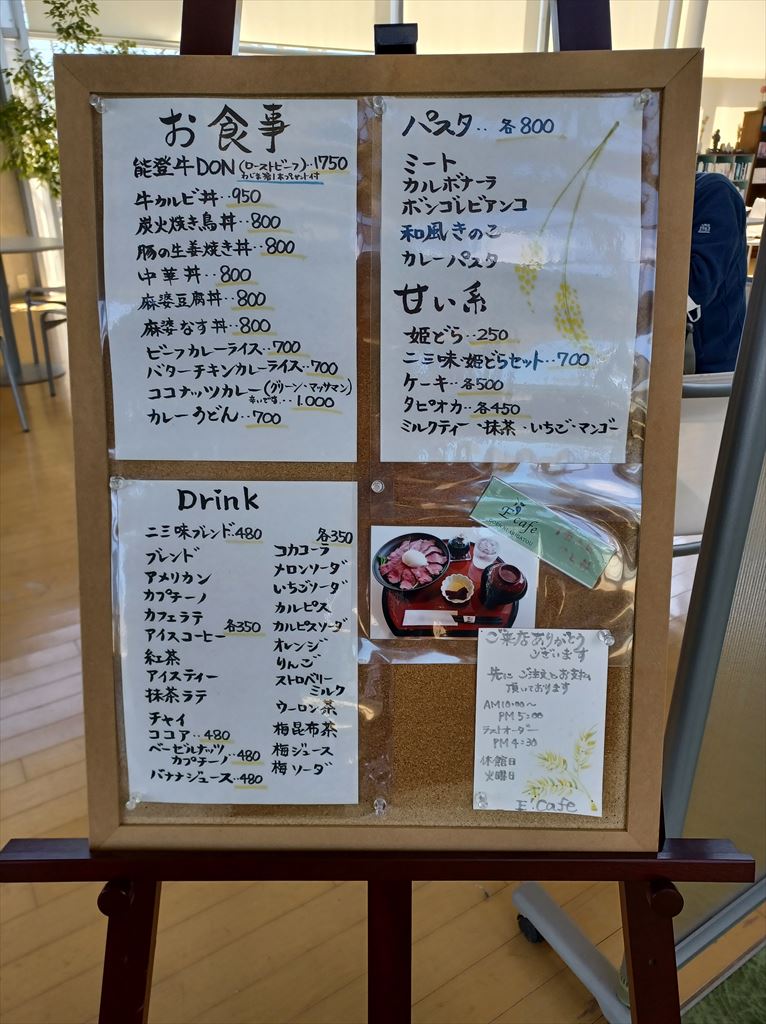 お食事
能登牛DON(ローストビーフ)‥1750
牛カルビ丼‥950
炭火焼き鳥丼‥800
豚の生姜焼き丼‥800
中華丼‥800
麻婆豆腐丼‥800
麻婆なす丼‥800
ビーフカレーライス‥700
バターチキンカレーライス‥700
ココナッツカレー(グリーン・マッサマン)
辛いです‥1,000
カレーうどん‥700
パスタ‥各800
ミート
カルボナーラ
ボンゴレビアンコ
和風きのこ
カレーパスタ
甘い系
姫どら‥250
二三味・姫どらセット‥700
ケーキ‥各500
タピオカ‥各450
ミルクティー・抹茶・いちご・マンゴー
Drink
二三味ブレンド‥480
ブレンド
アメリカン
カプチーノ
カフェラテ
アイスコーヒー 各350
紅茶
アイスティー
抹茶ラテ
チャイ
ココア‥480
ベーゼルナッツ
カプチーノ‥480
バナナジュース‥480
各350
コカコーラ
メロンソーダ
いちごソーダ
カルピス
カルピスソーダ
オレンジ
りんご
ストロベリー
ミルク
ウーロン茶
梅昆布茶
梅ジュース
梅ソーダ
E'cafe
ご来店ありがとう
ございます
先にご注文とお支払
頂いております
AM10:00〜
PM5:00
ラストオーダー
PM4:30
休館日
火曜日
E'Cafe